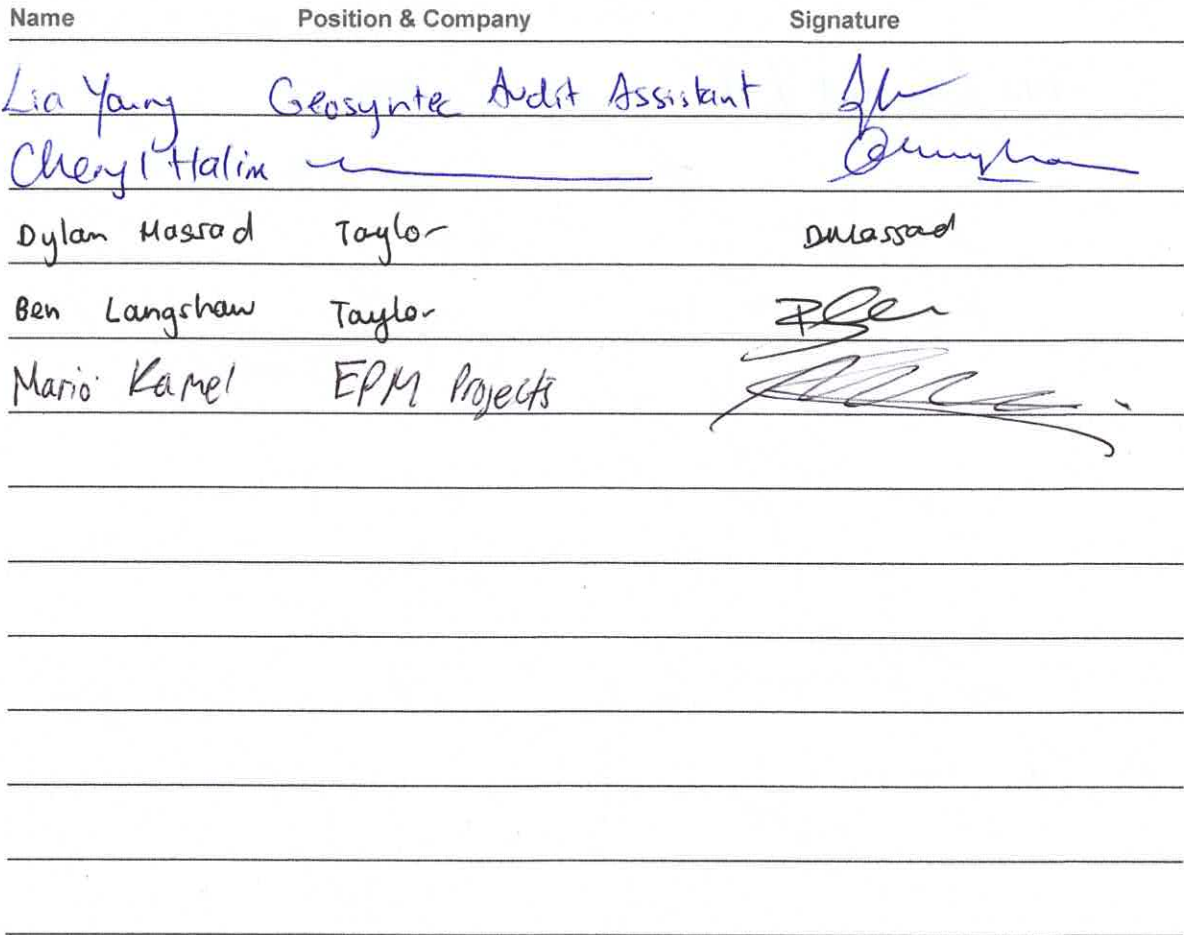 Name Position & Company Signature
Lia Young Geosyntec Audit Assistant
Cheryl Halim
Dylan Massad Taylor DMassad
Ben Langshaw Taylor
Mario Kamel EPM Projects